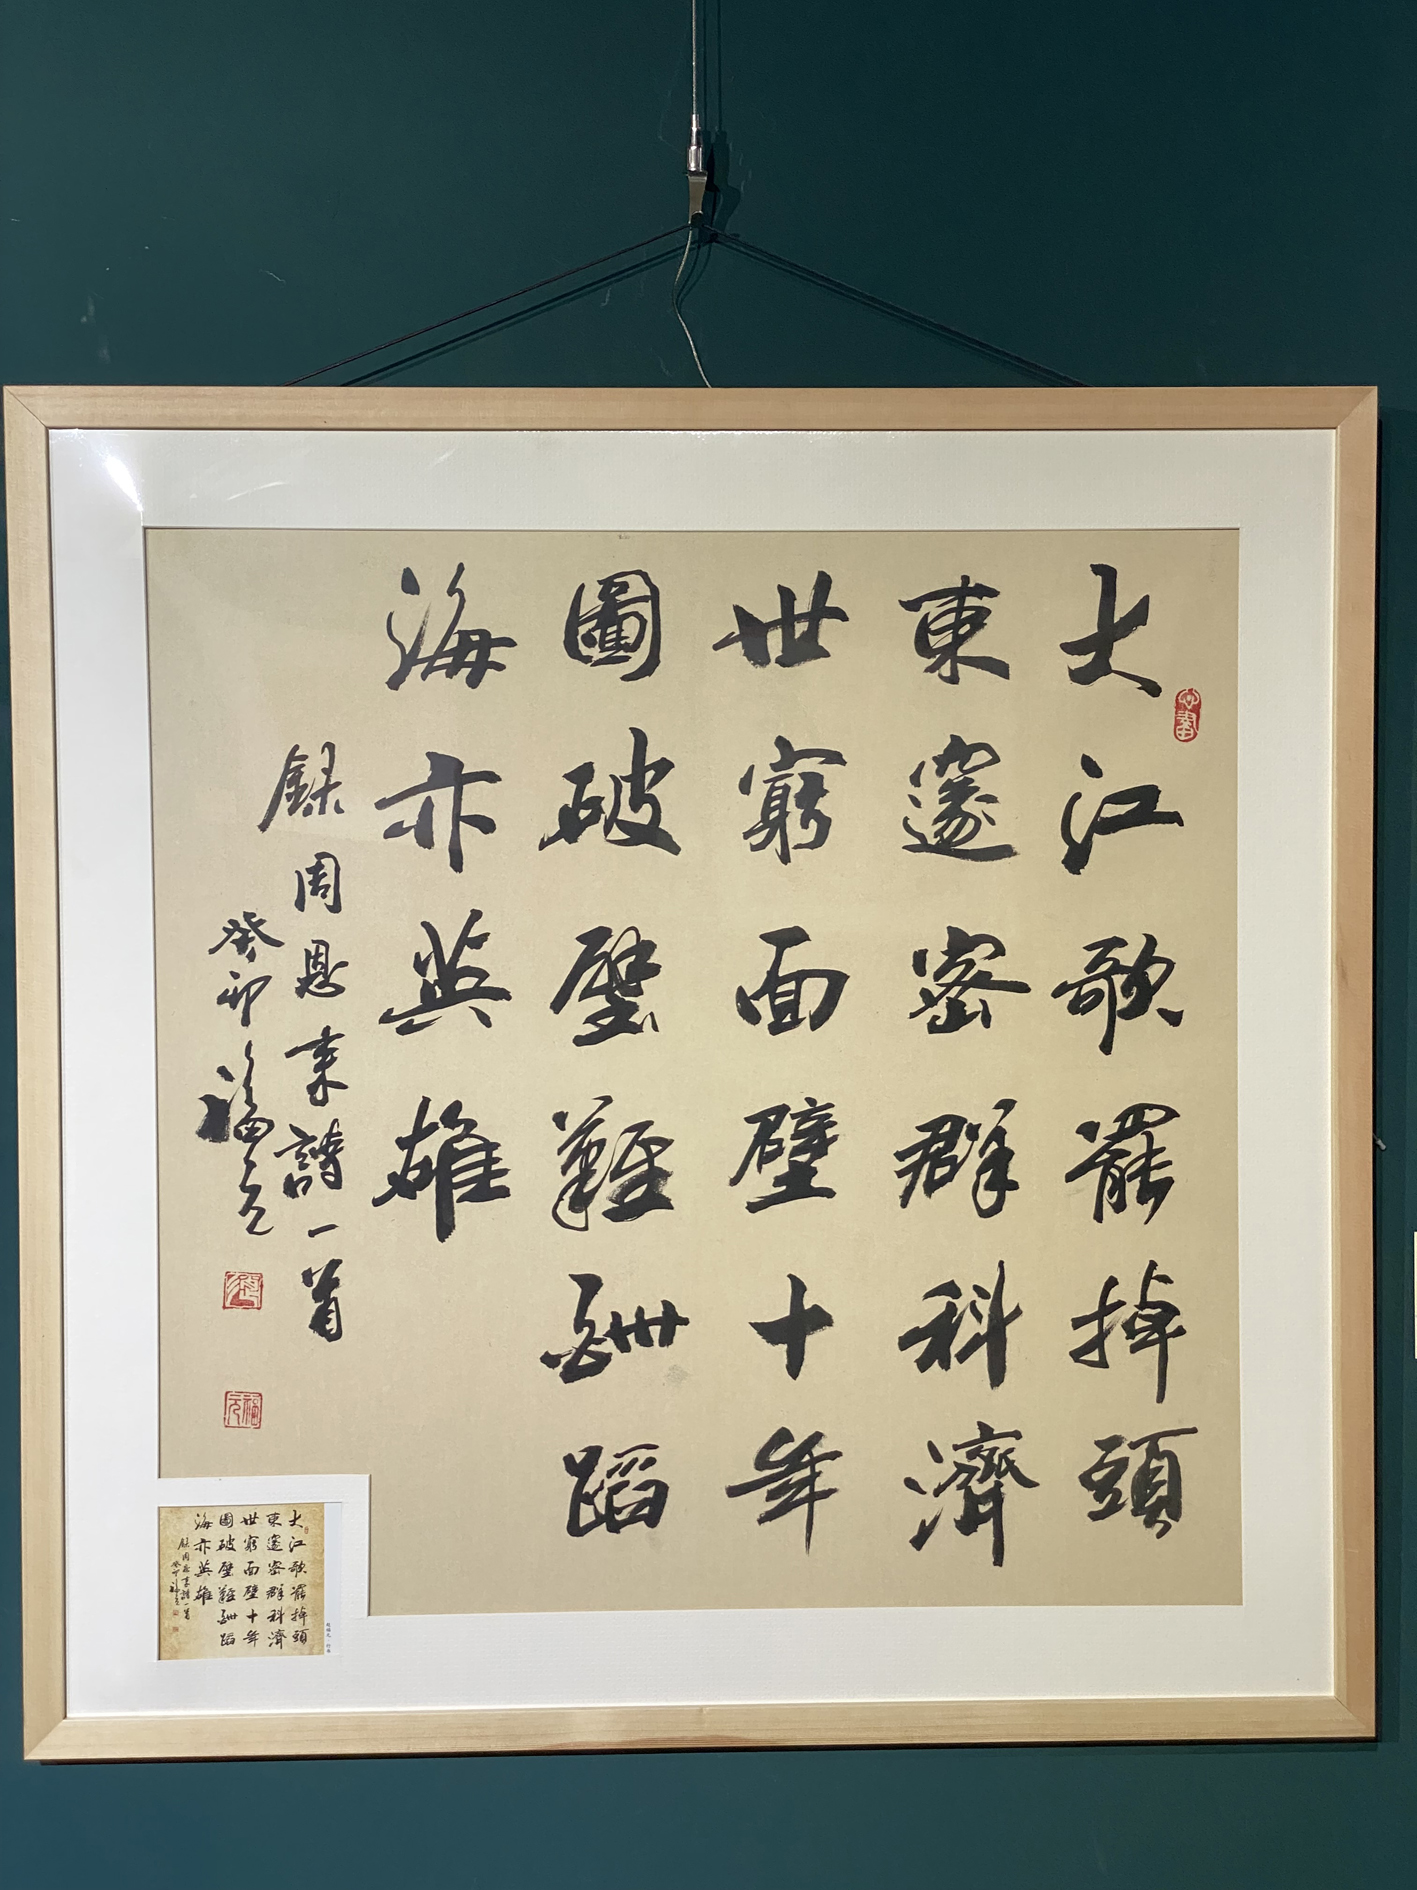 大江歌罷掉頭
東邃密群科濟
世窮面壁十年
圖破壁難酬蹈
海亦英雄
錄周恩来詩一首
癸卯福元
心畫
福元
大江歌罷掉頭
東邃密群科濟
世窮面壁十年
圖破壁難酬蹈
海亦英雄
錄周恩来詩一首
癸卯福元